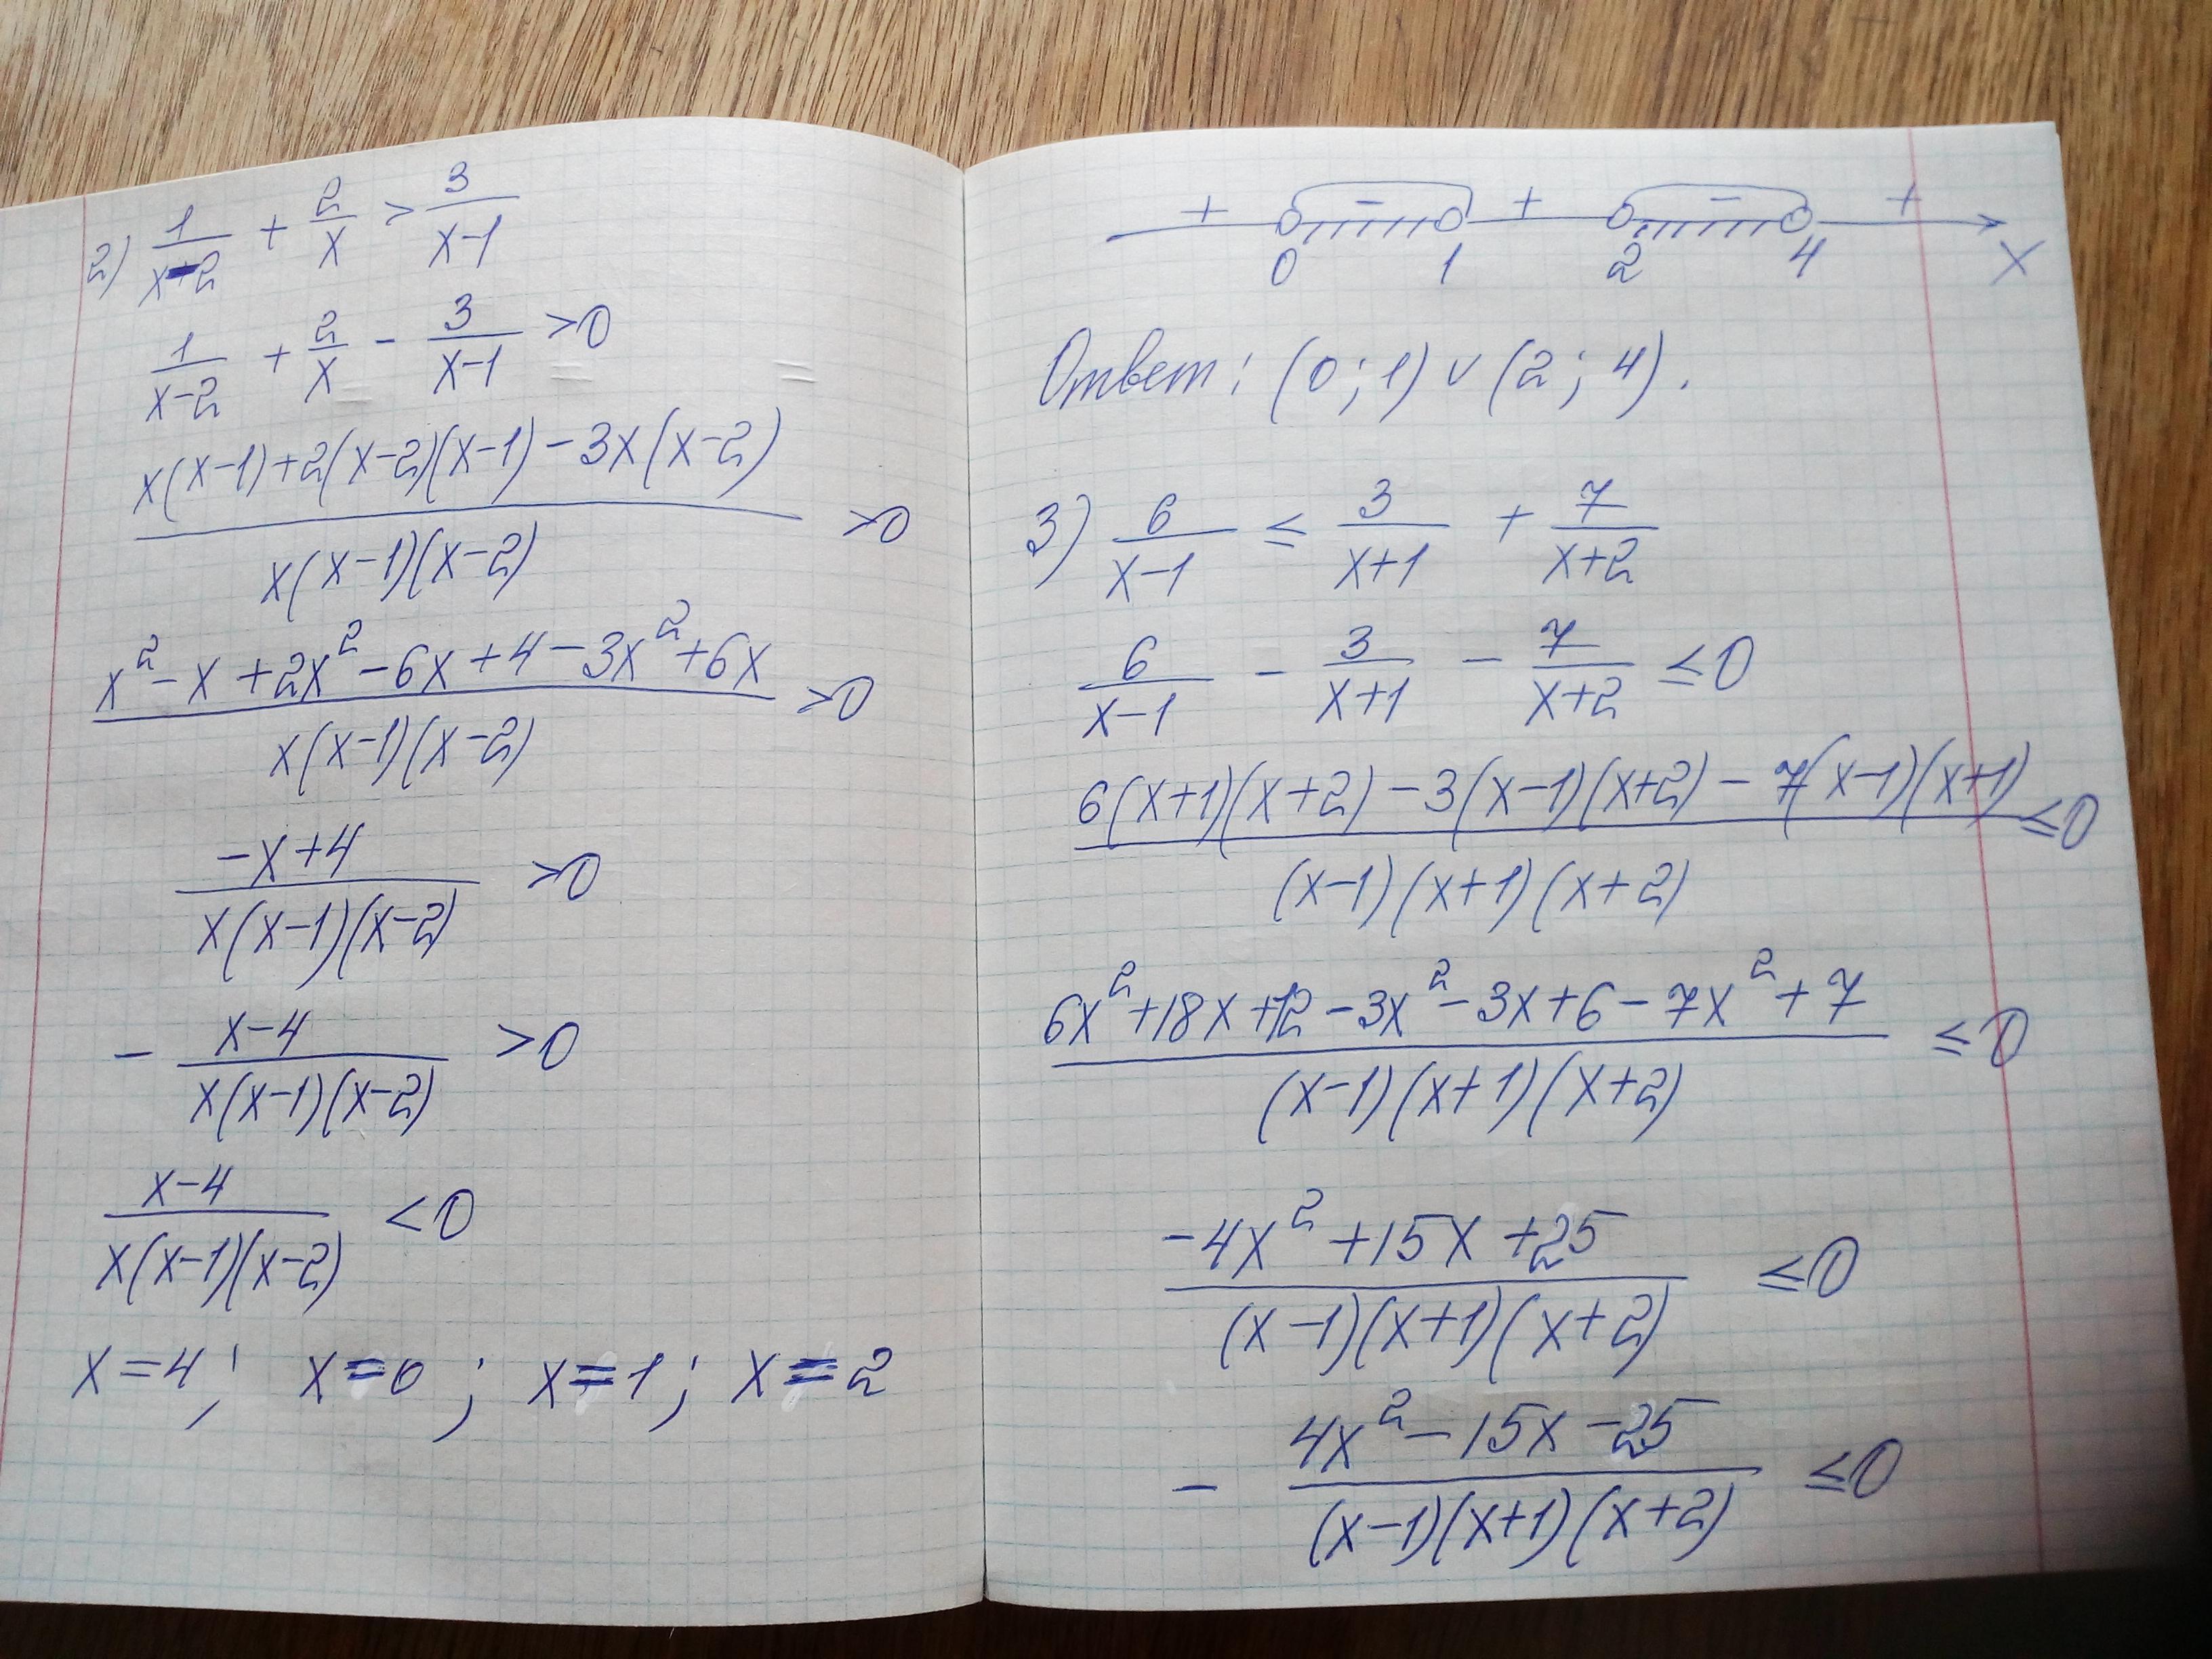 2) 1/(x-2) + 2/x > 3/(x-1)
1/(x-2) + 2/x - 3/(x-1) >0
(x(x-1)+2(x-2)(x-1)-3x(x-2))/(x(x-1)(x-2)) >0
(x²-x+2x²-6x+4-3x²+6x)/(x(x-1)(x-2)) >0
(-x+4)/(x(x-1)(x-2)) >0
- (x-4)/(x(x-1)(x-2)) >0
(x-4)/(x(x-1)(x-2)) <0
x=4; x=0; x=1; x=2
+ - + - +
0 1 2 4 x
Ответ: (0;1)∪(2;4).
3) 6/(x-1) ≤ 3/(x+1) + 7/(x+2)
6/(x-1) - 3/(x+1) - 7/(x+2) ≤0
(6(x+1)(x+2)-3(x-1)(x+2)-7(x-1)(x+1))/((x-1)(x+1)(x+2)) ≤0
(6x²+18x+12-3x²-3x+6-7x²+7)/((x-1)(x+1)(x+2)) ≤0
(-4x²+15x+25)/((x-1)(x+1)(x+2)) ≤0
- (4x²-15x-25)/((x-1)(x+1)(x+2)) ≤0